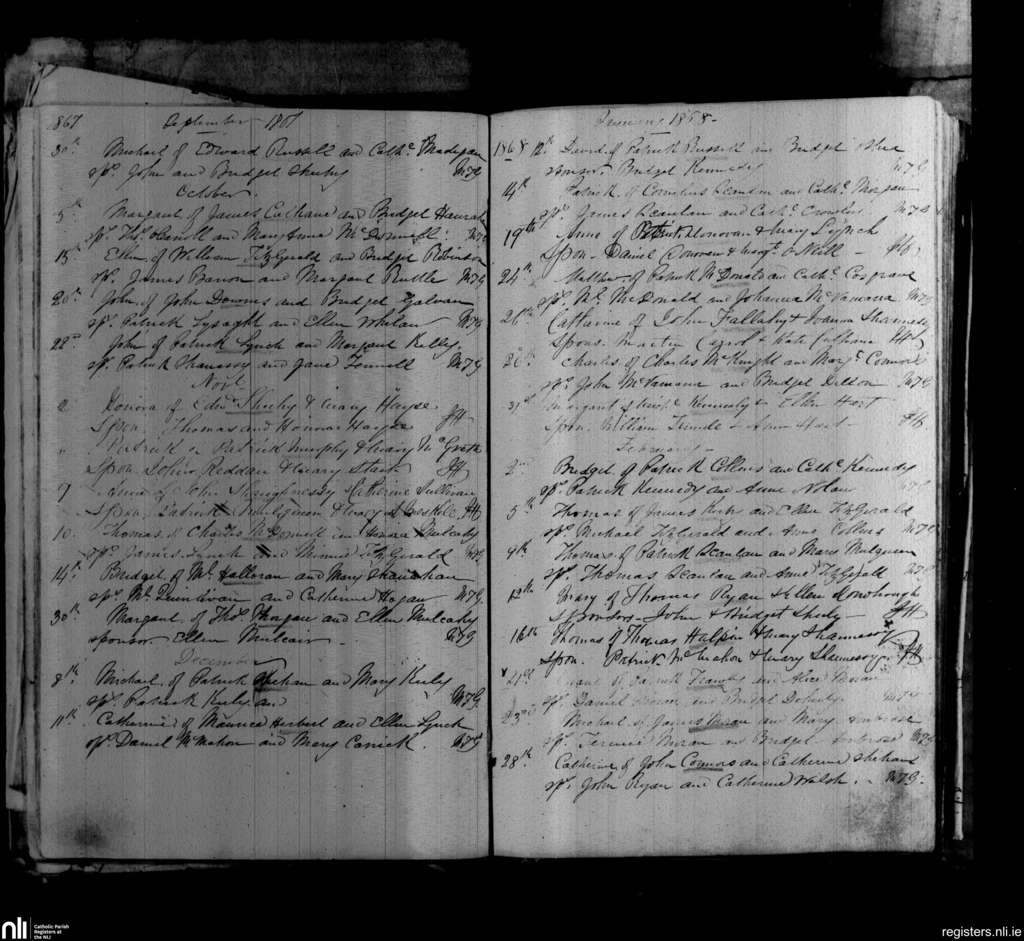 1867 September 1867
30th Michael of Edward Russell and Cathe Madigan
sps John and Bridget Sheehy M7G
October
5th Margaret of James Culhane and Bridget Hanrahan
sps Thos Carroll and Mary Anne McDonnell M7G
15th Ellen of William FitzGerald and Bridget Robinson
sps James Barron and Margaret Ruttle M7G
20th John of John Downes and Bridget Galvan
sps Patrick Lysaght and Ellen Whelan M7G
22nd John of Patrick Lynch and Margaret Kelly
sps Patrick Shanessy and Jane Fennell M7G
Novr
2 Honora of Edwd Sheehy & Mary Hayse
Spon. Thomas and Honora Hayse
" Patrick of Patrick Murphy & Mary McGrath
Spon. John Reddan & Mary Stack
9 of John Shaughnessy Catherine Sullivan
Spon Patrick Mulqueen & Mary
10. Thomas of Charles McDonnell and Honora Mulcahy
sps James Lynch and FitzGerald M7G
14th Bridget of Ml Halloran and Mary Shanahan
sps Ml Quinlivan and Catherine Hogan M7G
30th Margaret of Thos Morgan and Ellen Mulcahy
sponsor Ellen Mulcair M7G
December
8th Michael of Patrick Sheehan and Mary Kirby
sps Patrick Kirby and M7G
11th Catherine of Maurice Herbert and Ellen Lynch
sps Daniel McMahon and Mary Carrick. M7G
1868
1868 12th David of Patrick Russell and Bridget Shea
sponsor Bridget Kennedy M7G
14th Patrick of Cornelius Scanlan and Cathe Morgan
sps James Scanlan and Cathe Crowley M7G
19th Anne of Patrick Donovan & Mary Lynch
Spon. Daniel Donovan & Margt O Neill
24th Matthew of Patrick McDonald and Cathe Cosgrave
sps Ml McDonald and Johanna McNamara M7G
26th Catharine of John Fallahy & Joanna Shanessy
Spons. Martin Carrol & Kate Culhane
26th Charles of Charles McKnight and Margt Connors
sps John McNamara and Bridget Dillon M7G
31st Margaret of Michl Kennealy & Ellen Hart
Spon. William & Anne Hart
February
2nd Bridget of Patrick Collins and Cathe Kennedy
sps Patrick Kennedy and Anne Nolan
5th Thomas of James Kirby and Ellen FitzGerald
sps Michael FitzGerald and Anne Collins M7G
9th Thomas of Patrick Scanlan and Mary Mulqueen
sps Thomas Scanlan and Anne FitzGerald M7G
12th Mary of Thomas Ryan & Ellen Donohough
Sponsors John & Bridget Sheehy
16th Thomas of Thomas Halpin & Mary Shannessy
Spon. Patrick McMahon & Mary Shannessy
21st of Patrick and Alice
sps Daniel and Bridget Doherty
23rd Michael of James Moran and Mary Ambrose
sps Terence Moran and Bridget Ambrose M7G
28th Catherine of John Connors and Catherine Shehan
sps John Ryan and Catherine Walsh. M7G
nli
Catholic Parish
Registers at
the NLI
registers.nli.ie